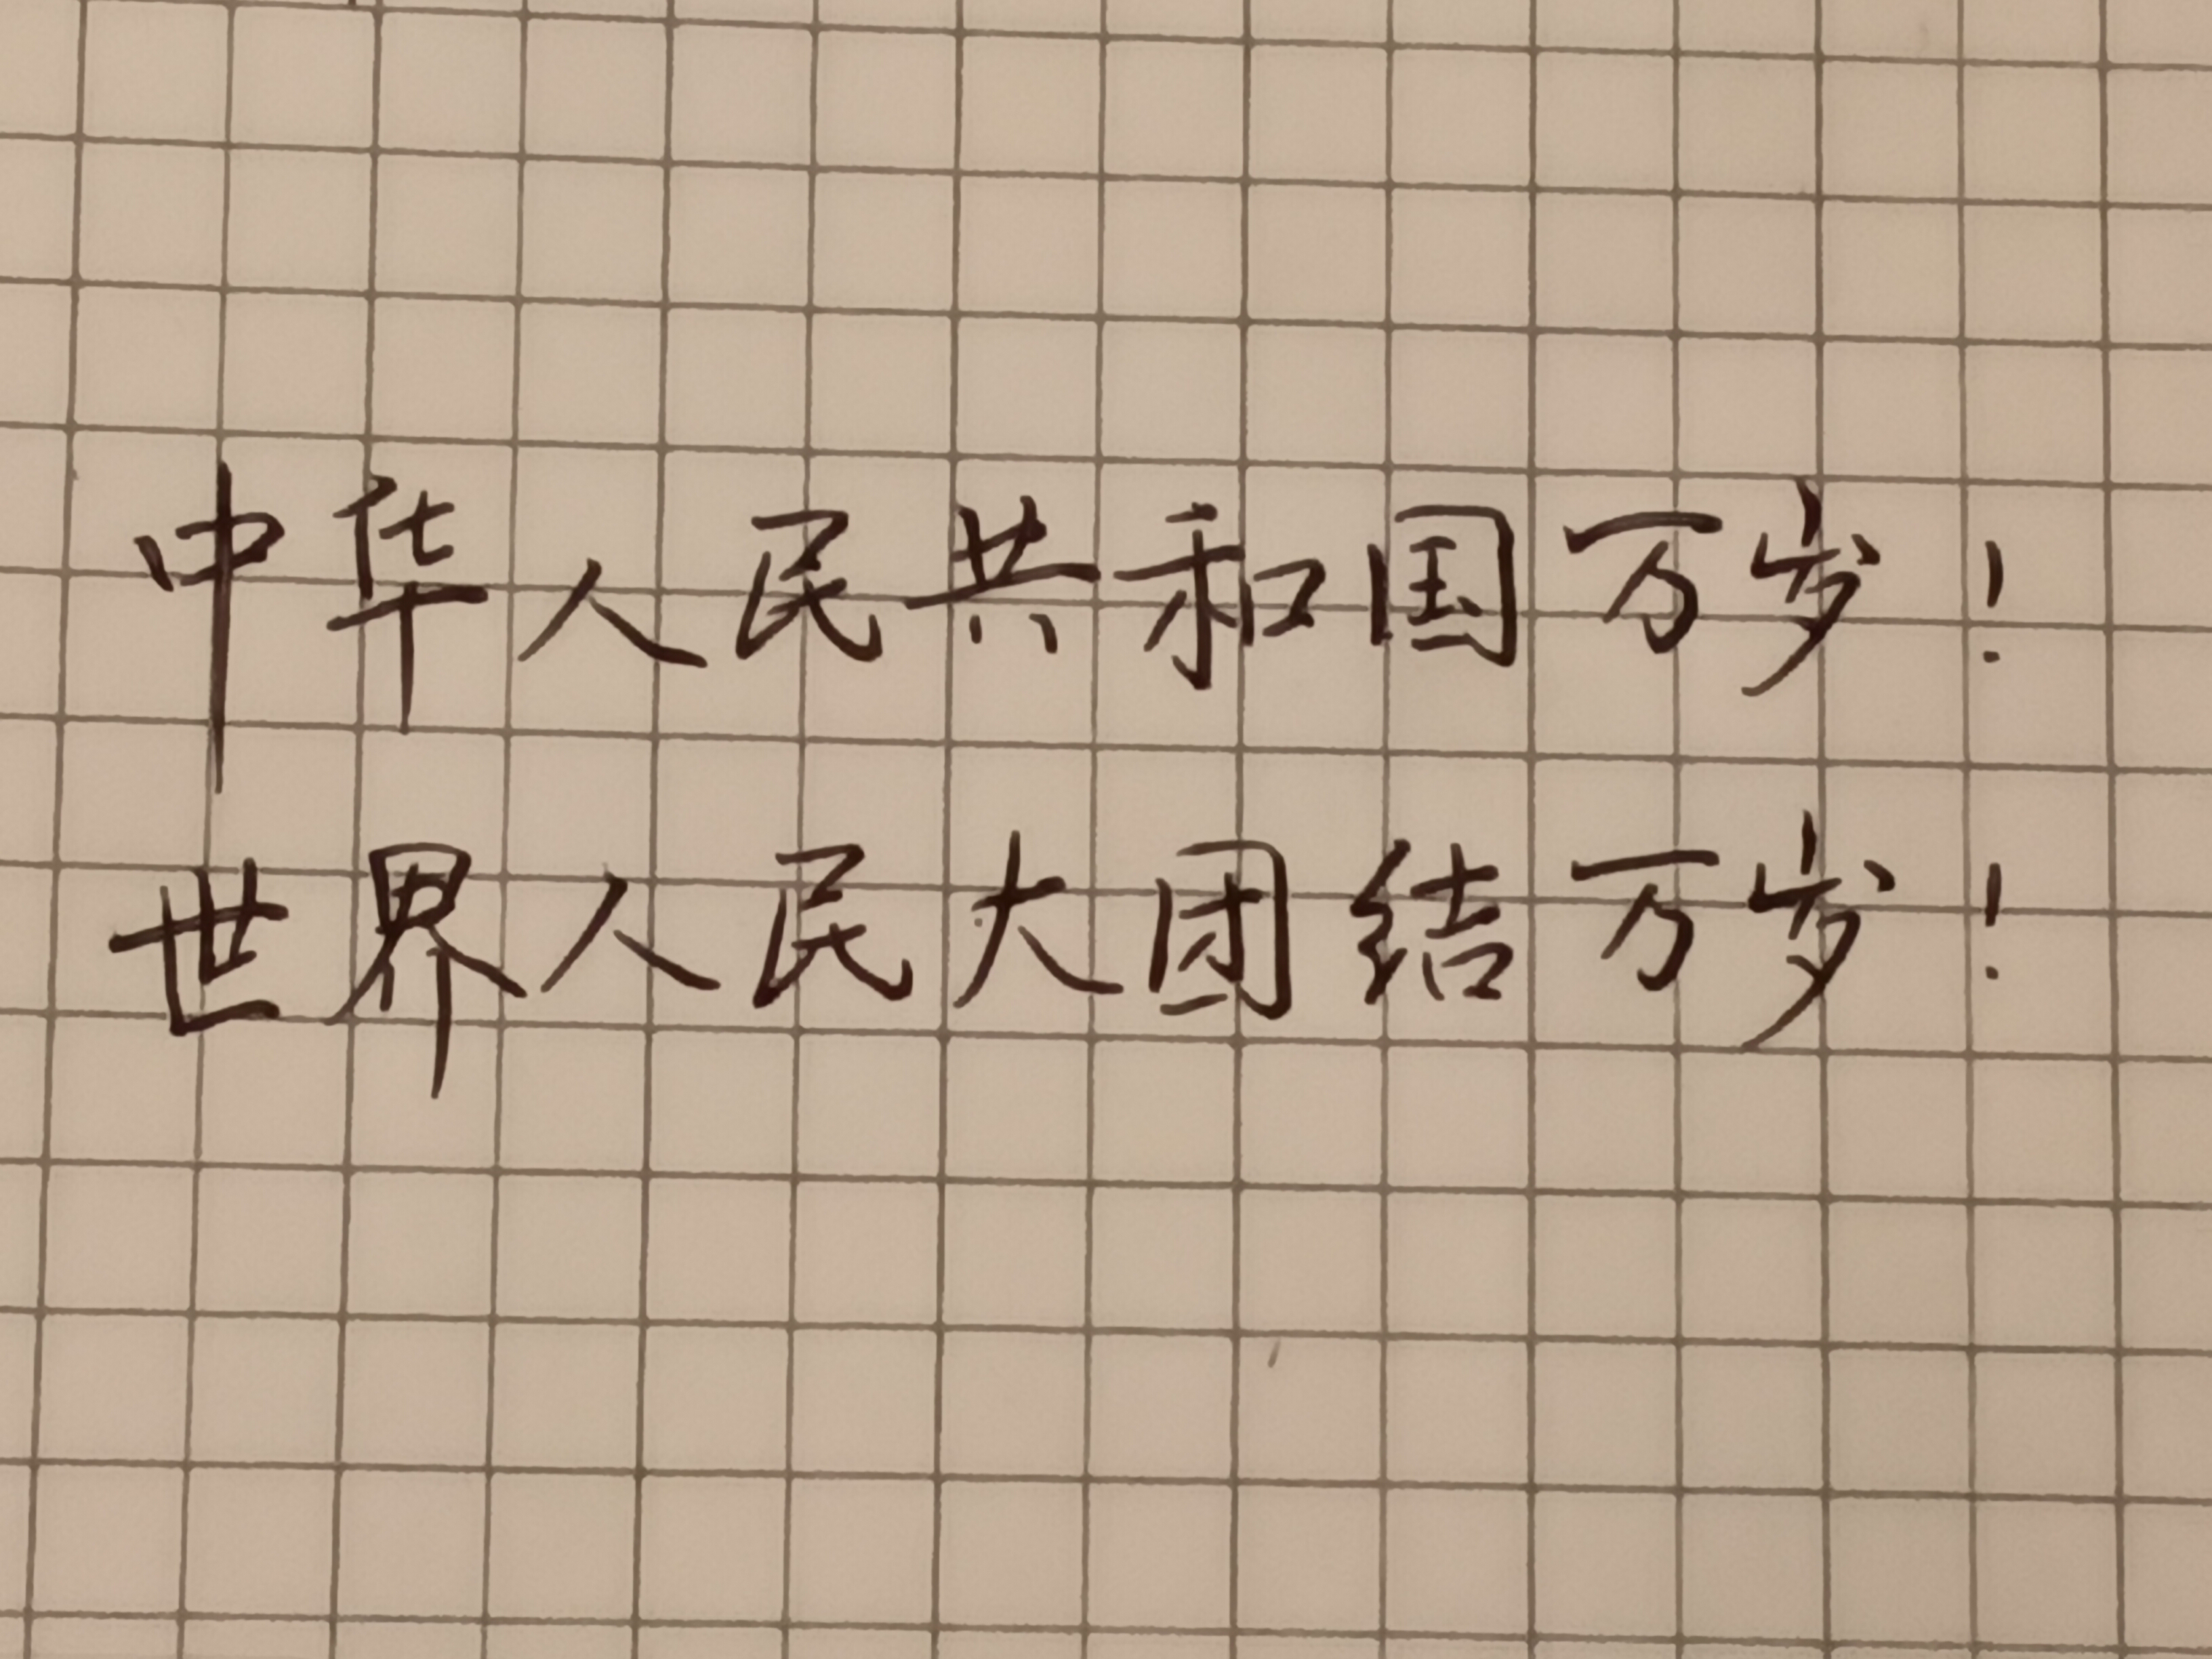 中华人民共和国万岁！
世界人民大团结万岁！